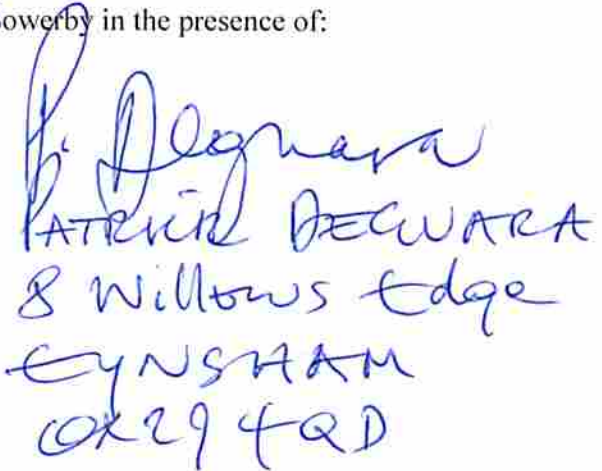 owerby in the presence of:
P. Degnara
PATRICK DEGUARA
8 Willows Edge
EYNSHAM
OX29 4QD